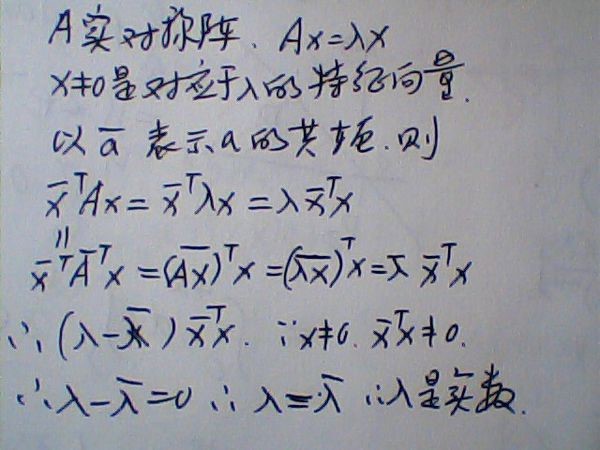 A实对称阵. Ax=λx
x≠0是对应于λ的特征向量.
以 a̅ 表示a的共轭.则
x̅ᵀAx = x̅ᵀλx = λx̅ᵀx
||
x̅ᵀA̅ᵀx = (A̅x̅)ᵀx = (λ̅x̅)ᵀx = λ̅ x̅ᵀx
∴ (λ-λ̅) x̅ᵀx. ∵x≠0. x̅ᵀx≠0.
∴ λ-λ̅=0 ∴ λ=λ̅ ∴λ是实数.